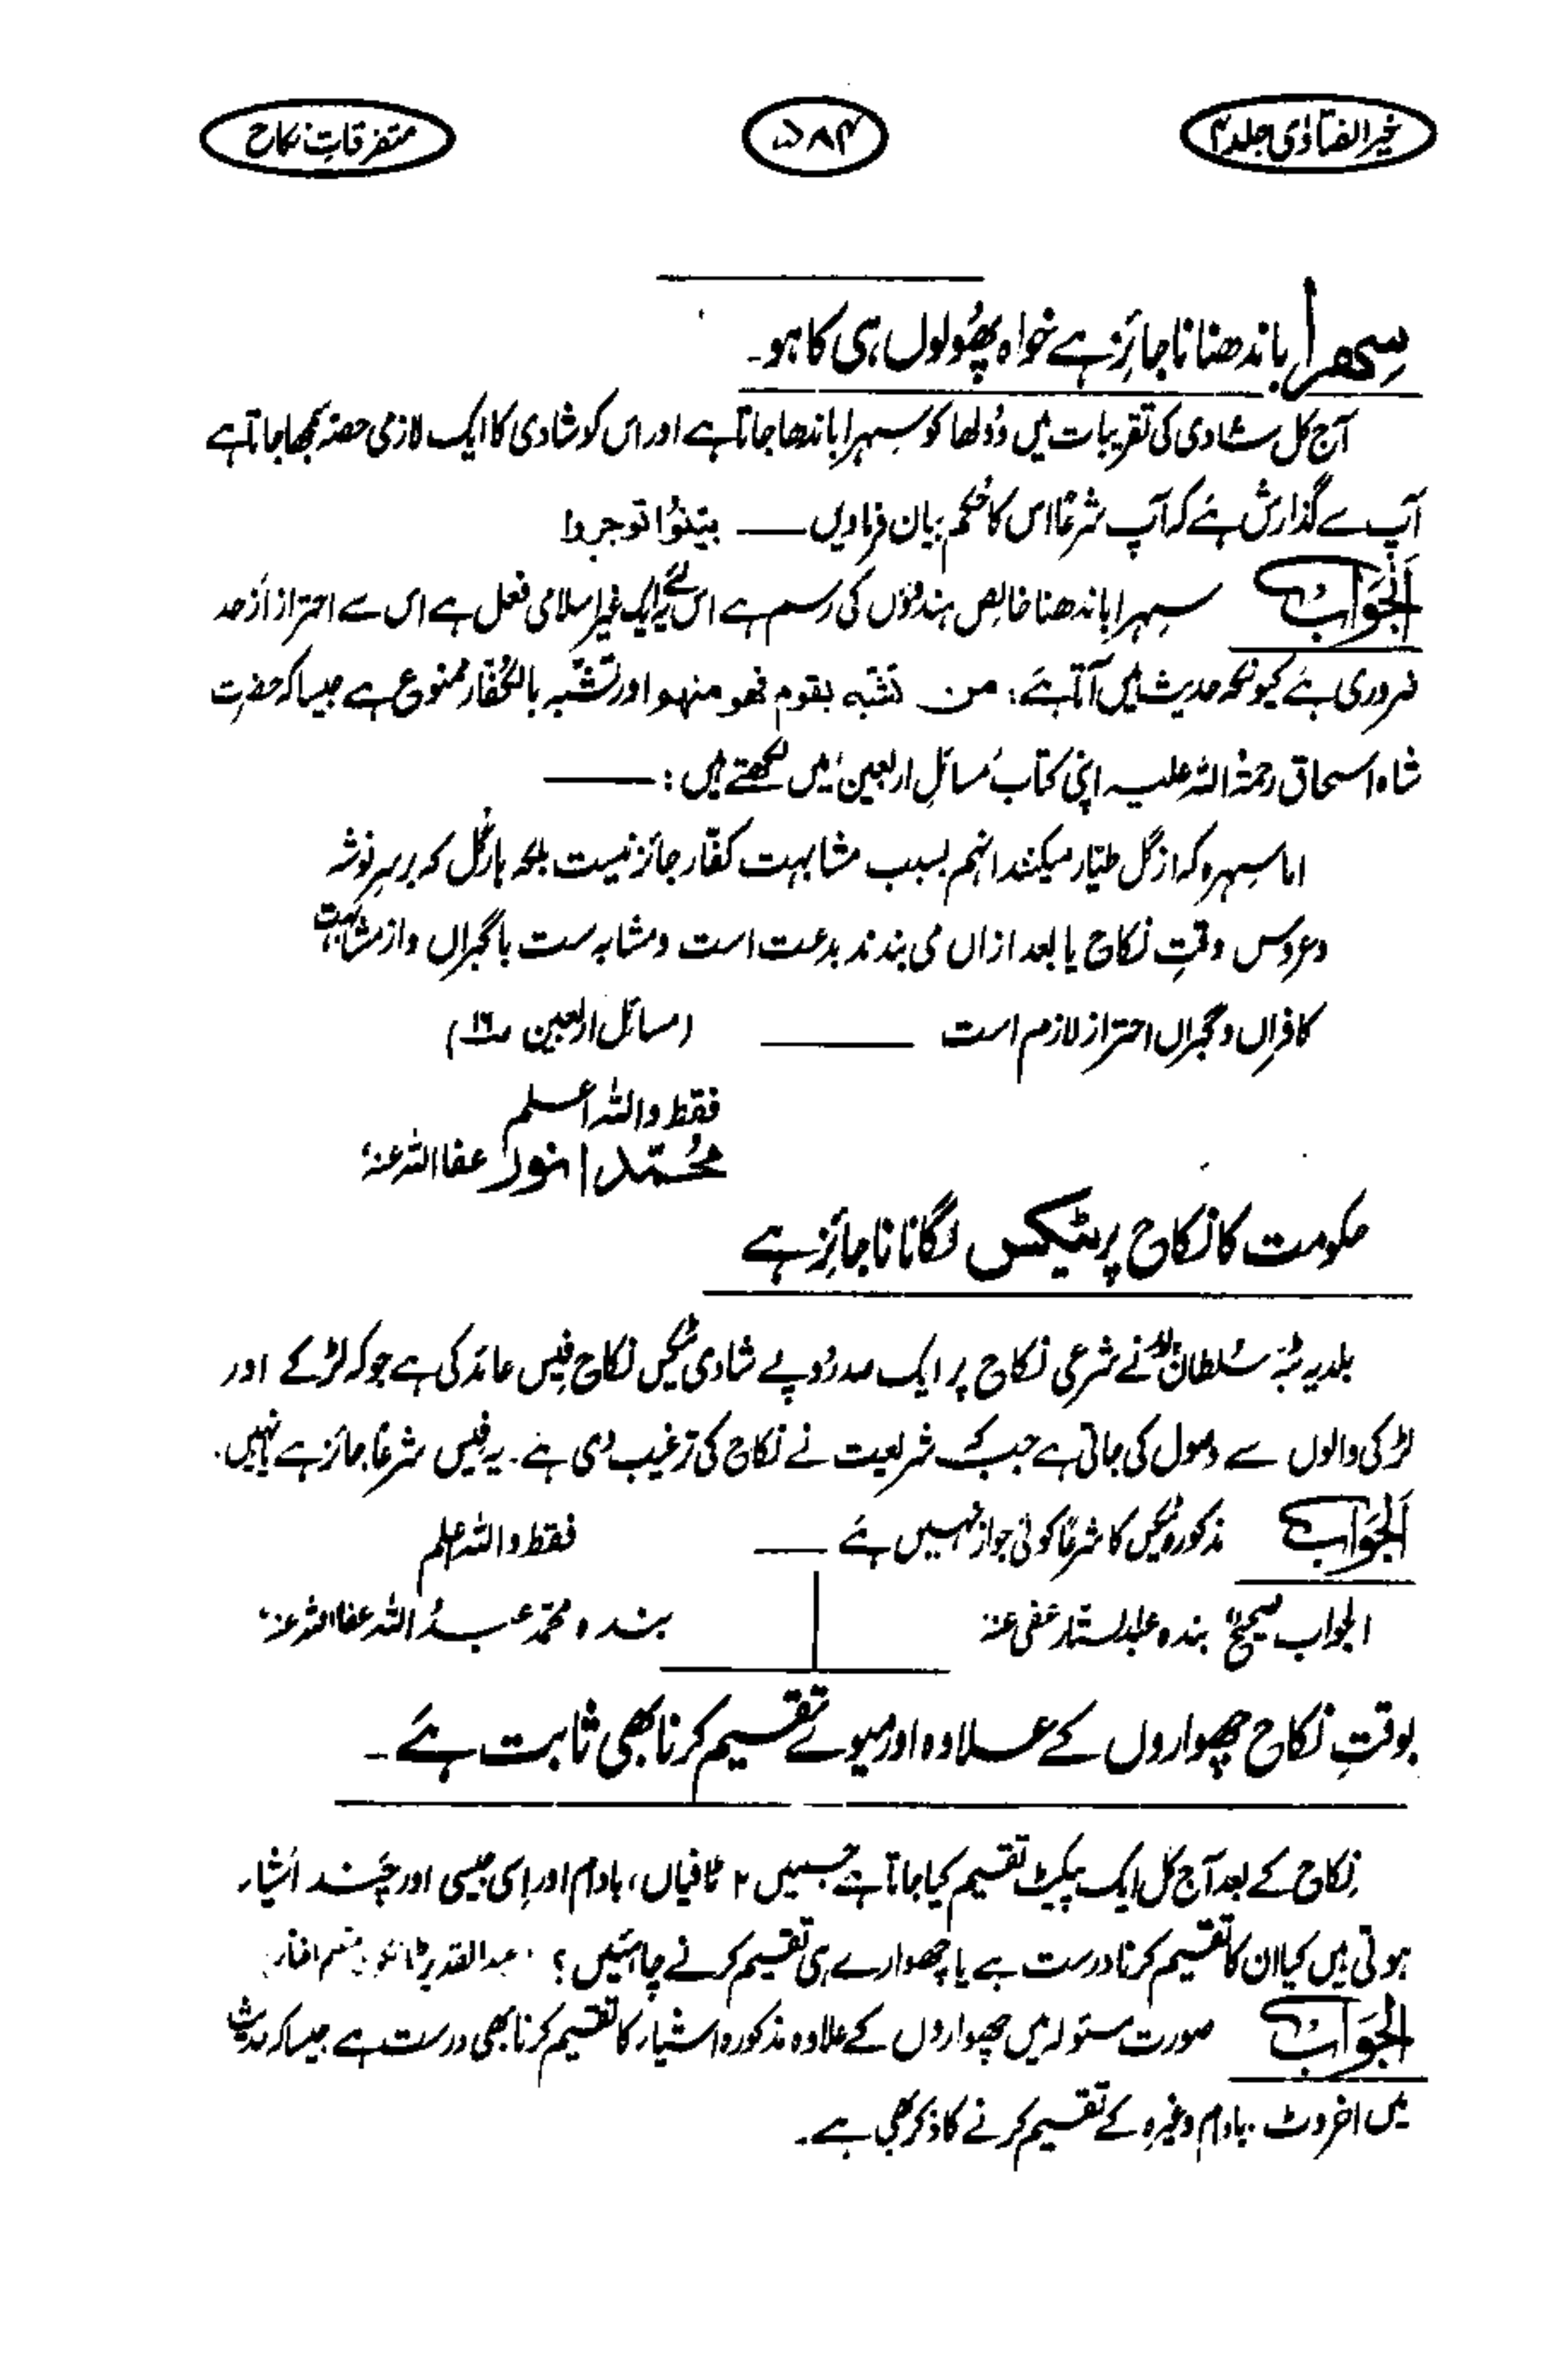 خیر الفتاوٰی جلد ۴
۵۸۴
متفرقاتِ نکاح
سِہرا باندھنا ناجائز ہے خواہ پھُولوں ہی کا ہو۔
آج کل شادی کی تقریبات میں دُولھا کو سہرا باندھا جاتا ہے اور اس کو شادی کا ایک لازمی حصہ سمجھا جاتا ہے
آپ سے گذارش ہے کہ آپ شرعًا اس کا حُکم بیان فرمادیں ــــ بیّنوُا توجروا
اَلجَوَابُ سہرا باندھنا خالص ہندوؤں کی رسم ہے اس لئے یہ ایک غیر اسلامی فعل ہے اس سے احتراز ازحد
ضروری ہے کیونکہ حدیث میں آتا ہے: من تشبّہ بقوم فھو منہم اور تشبّہ بالکُفّار ممنوع ہے جیسا کہ حضرت
شاہ اسحاق رحمۃ اللہ علیہ اپنی کتاب ’مسائلِ اربعین‘ میں لکھتے ہیں : ــــ
اما سہرہ کہ از گل طیار میکنند انہم بسبب مشابہت کفّار جائز نیست بلکہ ہار گُل کہ بر سرِ نوشہ
و عروس وقتِ نکاح یا بعد ازاں می بندند بدعت است و مشابہ ست با گبراں و از مشابہت
کافراں و گبراں احتراز لازم است ــــ (مسائل اربعین ص۱۶)
فقط واللہ اعلم
محُمّد انور عفا اللہ عنہ
حکومت کا نکاح پر ٹیکس لگانا ناجائز ہے
بلدیہ ٹبہ سُلطان پور نے شرعی نکاح پر ایک صد روپے شادی ٹیکس نکاح فیس عائد کی ہے جو کہ لڑکے اور
لڑکی والوں سے وصول کی جاتی ہے جب کہ شریعت نے نکاح کی ترغیب دی ہے۔ یہ فیس شرعًا جائز ہے یا نہیں۔
اَلجَوَابُ مذکورہ ٹیکس کا شرعًا کوئی جواز نہیں ہے ــــ فقط واللہ اعلم
الجواب صحیح بندہ عبدالستار عفی عنہ
بندہ محمّد عبدُ اللہ عفا اللہ عنہ
بوقتِ نکاح چھواروں کے علاوہ اور میوے تقسیم کرنا بھی ثابت ہے ۔
نکاح کے بعد آج کل ایک پیکٹ تقسیم کیا جاتا ہے جسمیں ۲ ٹافیاں، بادام اور اِسی جیسی اور چند اشیاء
ہوتی ہیں کیا ان کا تقسیم کرنا درست ہے یا چھوارے ہی تقسیم کرنے چاہئیں ؟ عبدالقدیر
اَلجَوَابُ صورت مسئولہ میں چھواروں کے علاوہ مذکورہ اشیاء کا تقسیم کرنا بھی درست ہے جیسا کہ حدیث
میں اخروٹ، بادام وغیرہ کے تقسیم کرنے کا ذکر بھی ہے۔